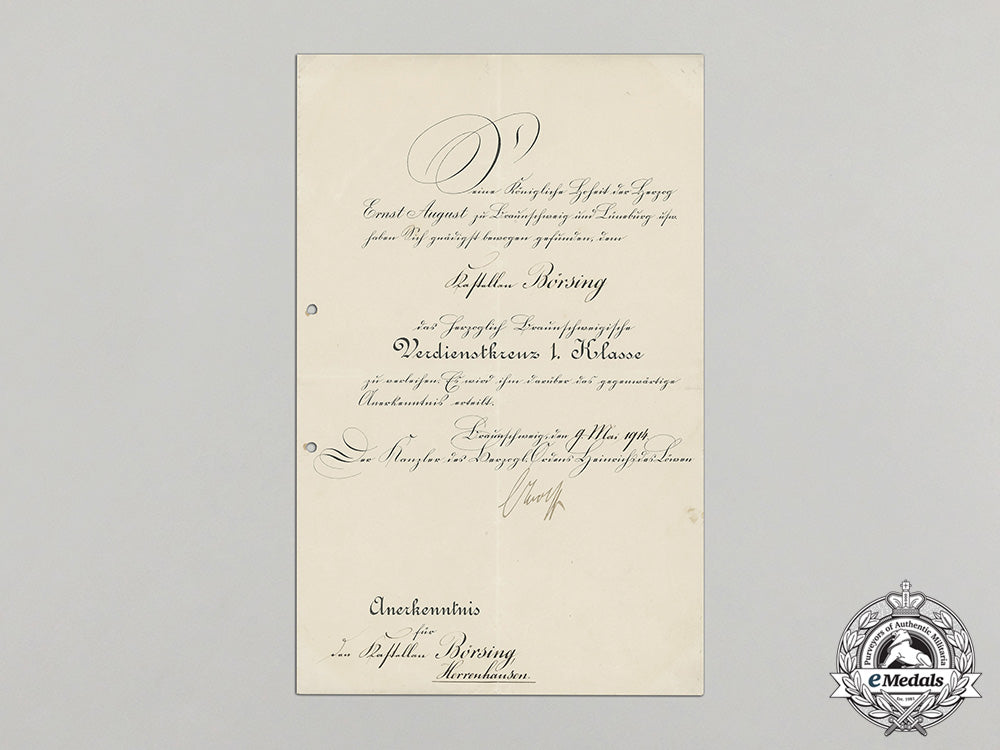 Seine Königliche Hoheit der Herzog
Ernst August zu Braunschweig und Lüneburg usw.
haben Sich gnädigst bewogen gefunden, dem
Kastellan Börsing
das Herzoglich Braunschweigische
Verdienstkreuz 1. Klasse
zu verleihen. Es wird ihm darüber das gegenwärtige
Anerkenntnis erteilt.
Braunschweig, den 9. Mai 1914.
Der Kanzler des Herzogl. Ordens Heinrichs des Löwen
Anerkenntnis
für
den Kastellan Börsing,
Herrenhausen.
Purveyors of Authentic Militaria
eMedals
Est. 1985